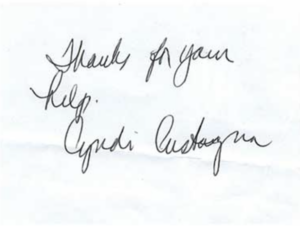 Thanks for your
help.
Cyndi Custagna